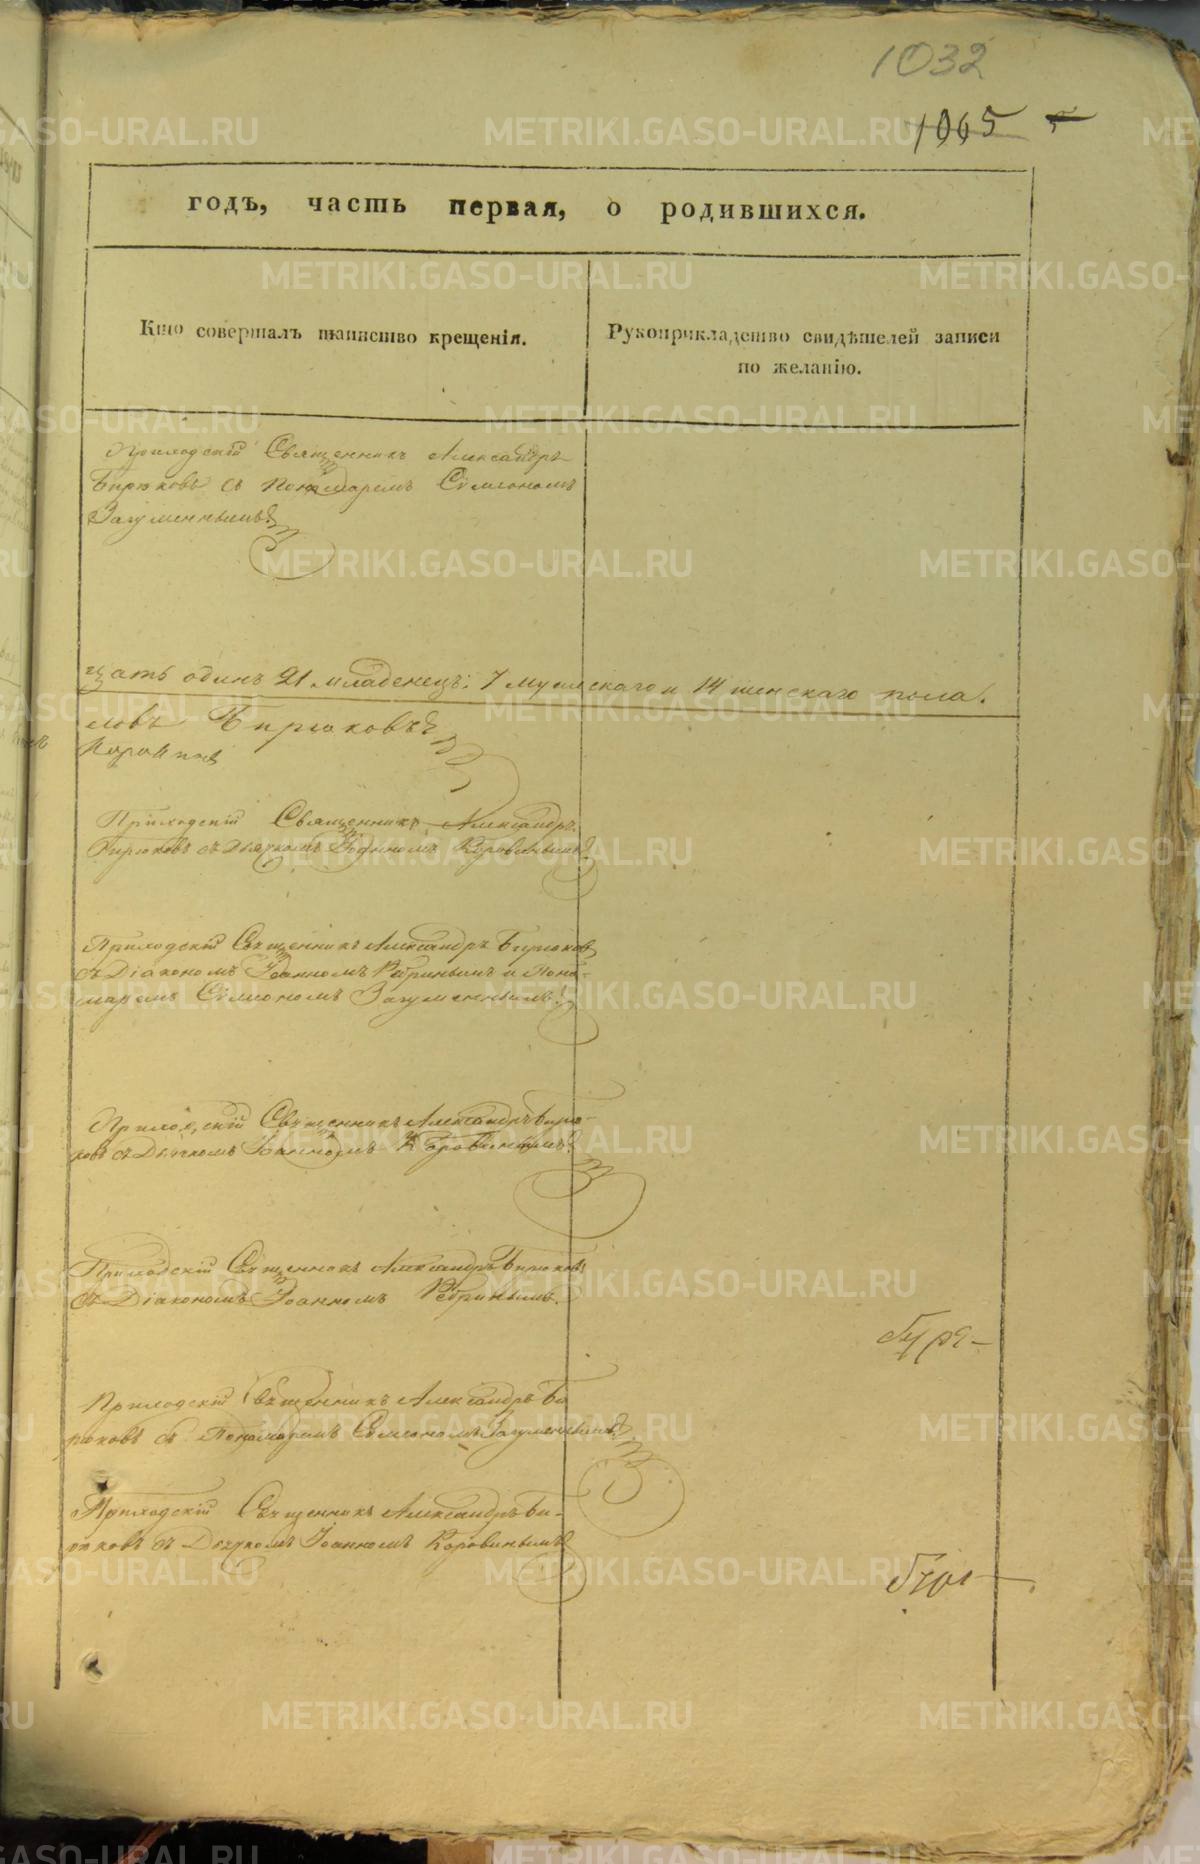 1032
1065
годъ, часть первая, о родившихся.
Кто совершалъ таинство крещенія.
Рукоприкладство свидѣтелей записи
по желанію.
Приходскій Священникъ Александръ
Бирюковъ съ Пономаремъ Сѵмеономъ
Загуменнымъ
цать одинъ 21 младенецъ: 7 мужескаго и 14 женскаго пола.
ловъ Бирюковъ
Коровинъ
Приходскій Священникъ Александръ
Бирюковъ съ Дьячкомъ Іоанномъ Коровинымъ
Приходскій Священникъ Александръ Бирюковъ
съ Діакономъ Іоанномъ и Поно-
маремъ Сѵмеономъ Загуменнымъ
Приходскій Священникъ Александръ Бирю-
ковъ съ Дьячкомъ Іоанномъ Коровинымъ
Приходскій Священникъ Александръ Бирюковъ
съ Діакономъ Іоанномъ
Приходскій Священникъ Александръ Би
рюковъ съ Пономаремъ Сѵмеономъ Загуменнымъ
Приходскій Священникъ Александръ Би-
рюковъ съ Дьячкомъ Іоанномъ Коровинымъ
METRIKI.GASO-URAL.RU